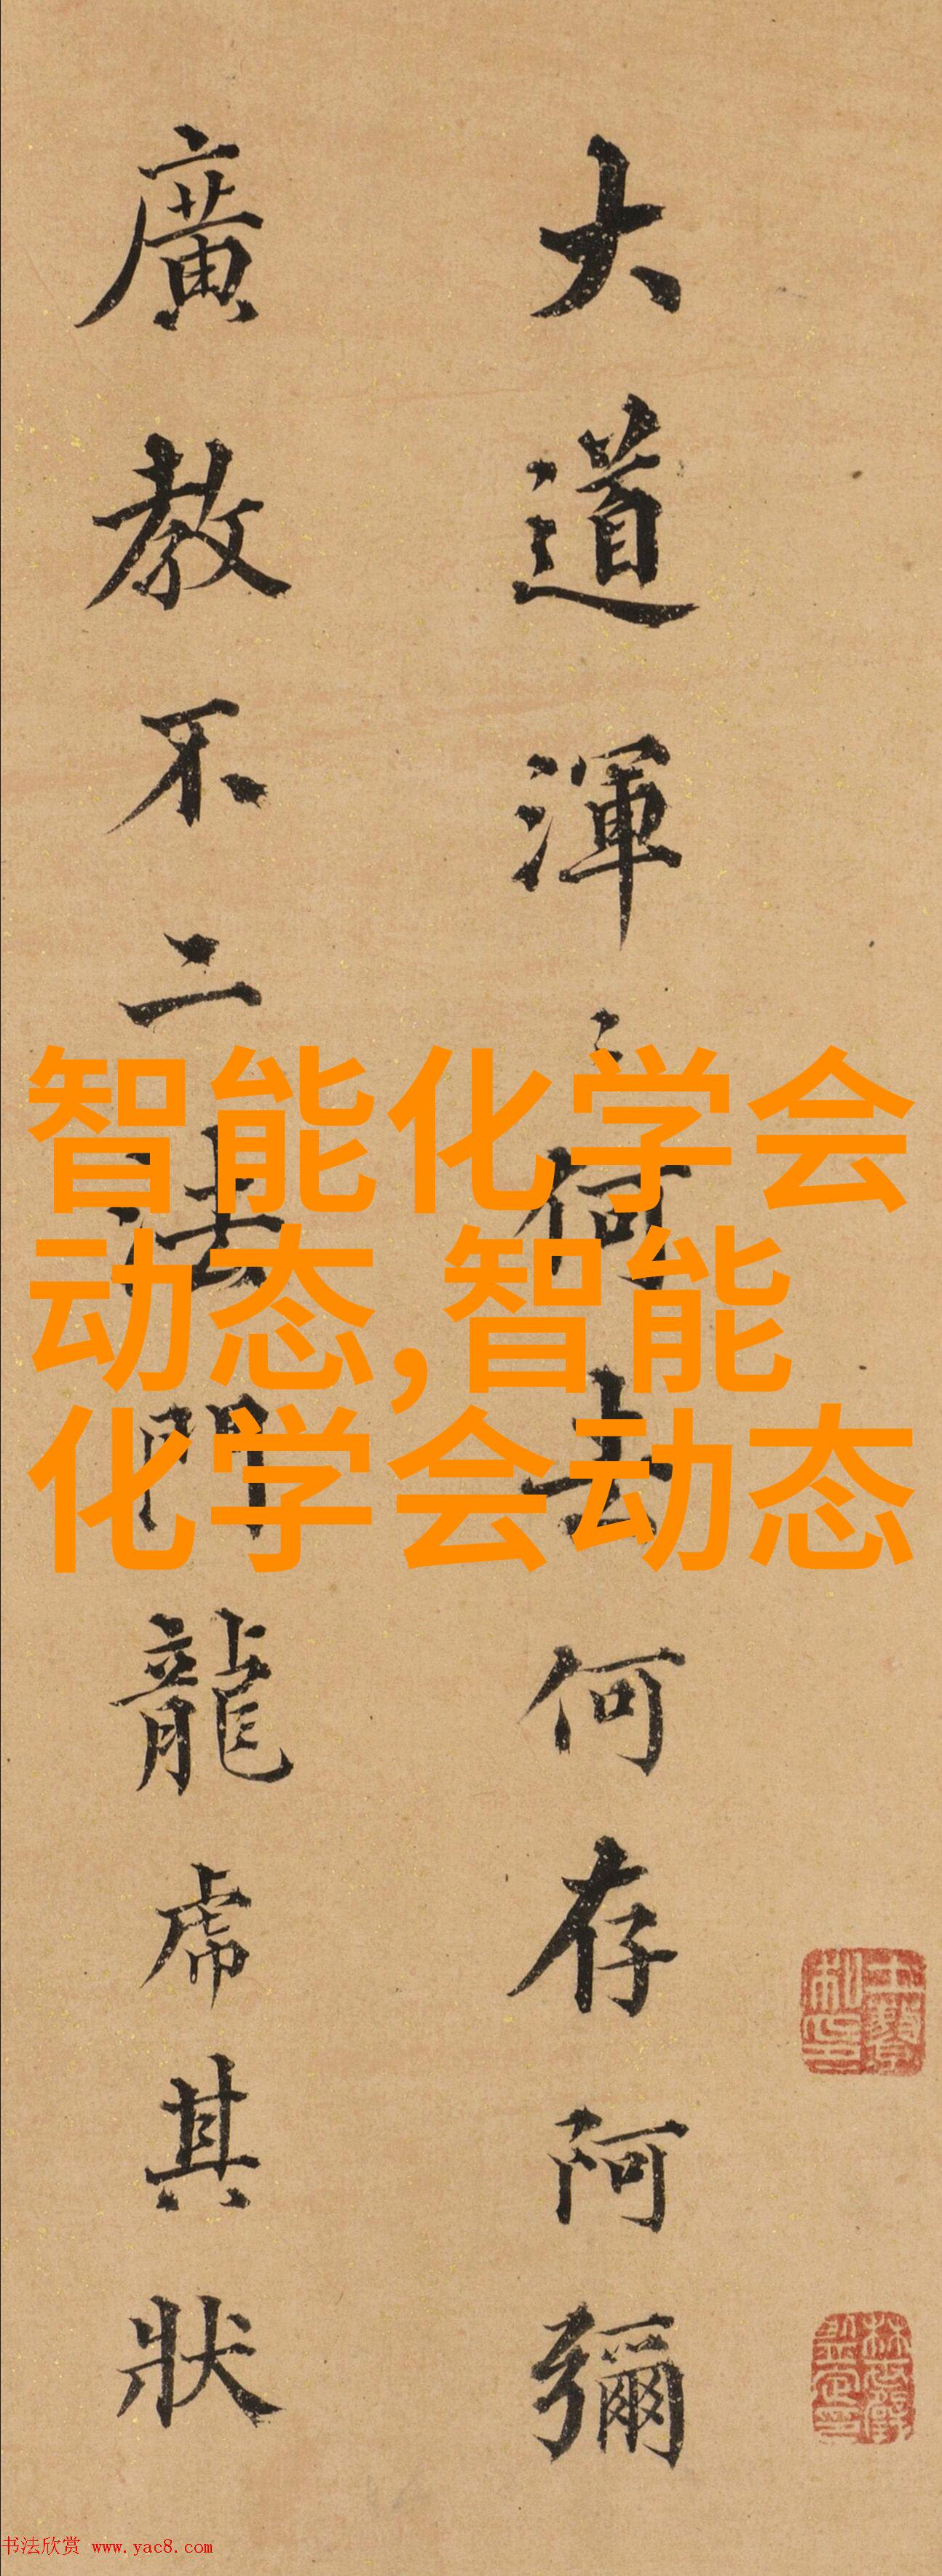 大道渾〻何去何存阿彌
廣教不二法門龍虎其狀
智能化学会
动态,智能
化学会动态
书法欣赏 www.yac8.com